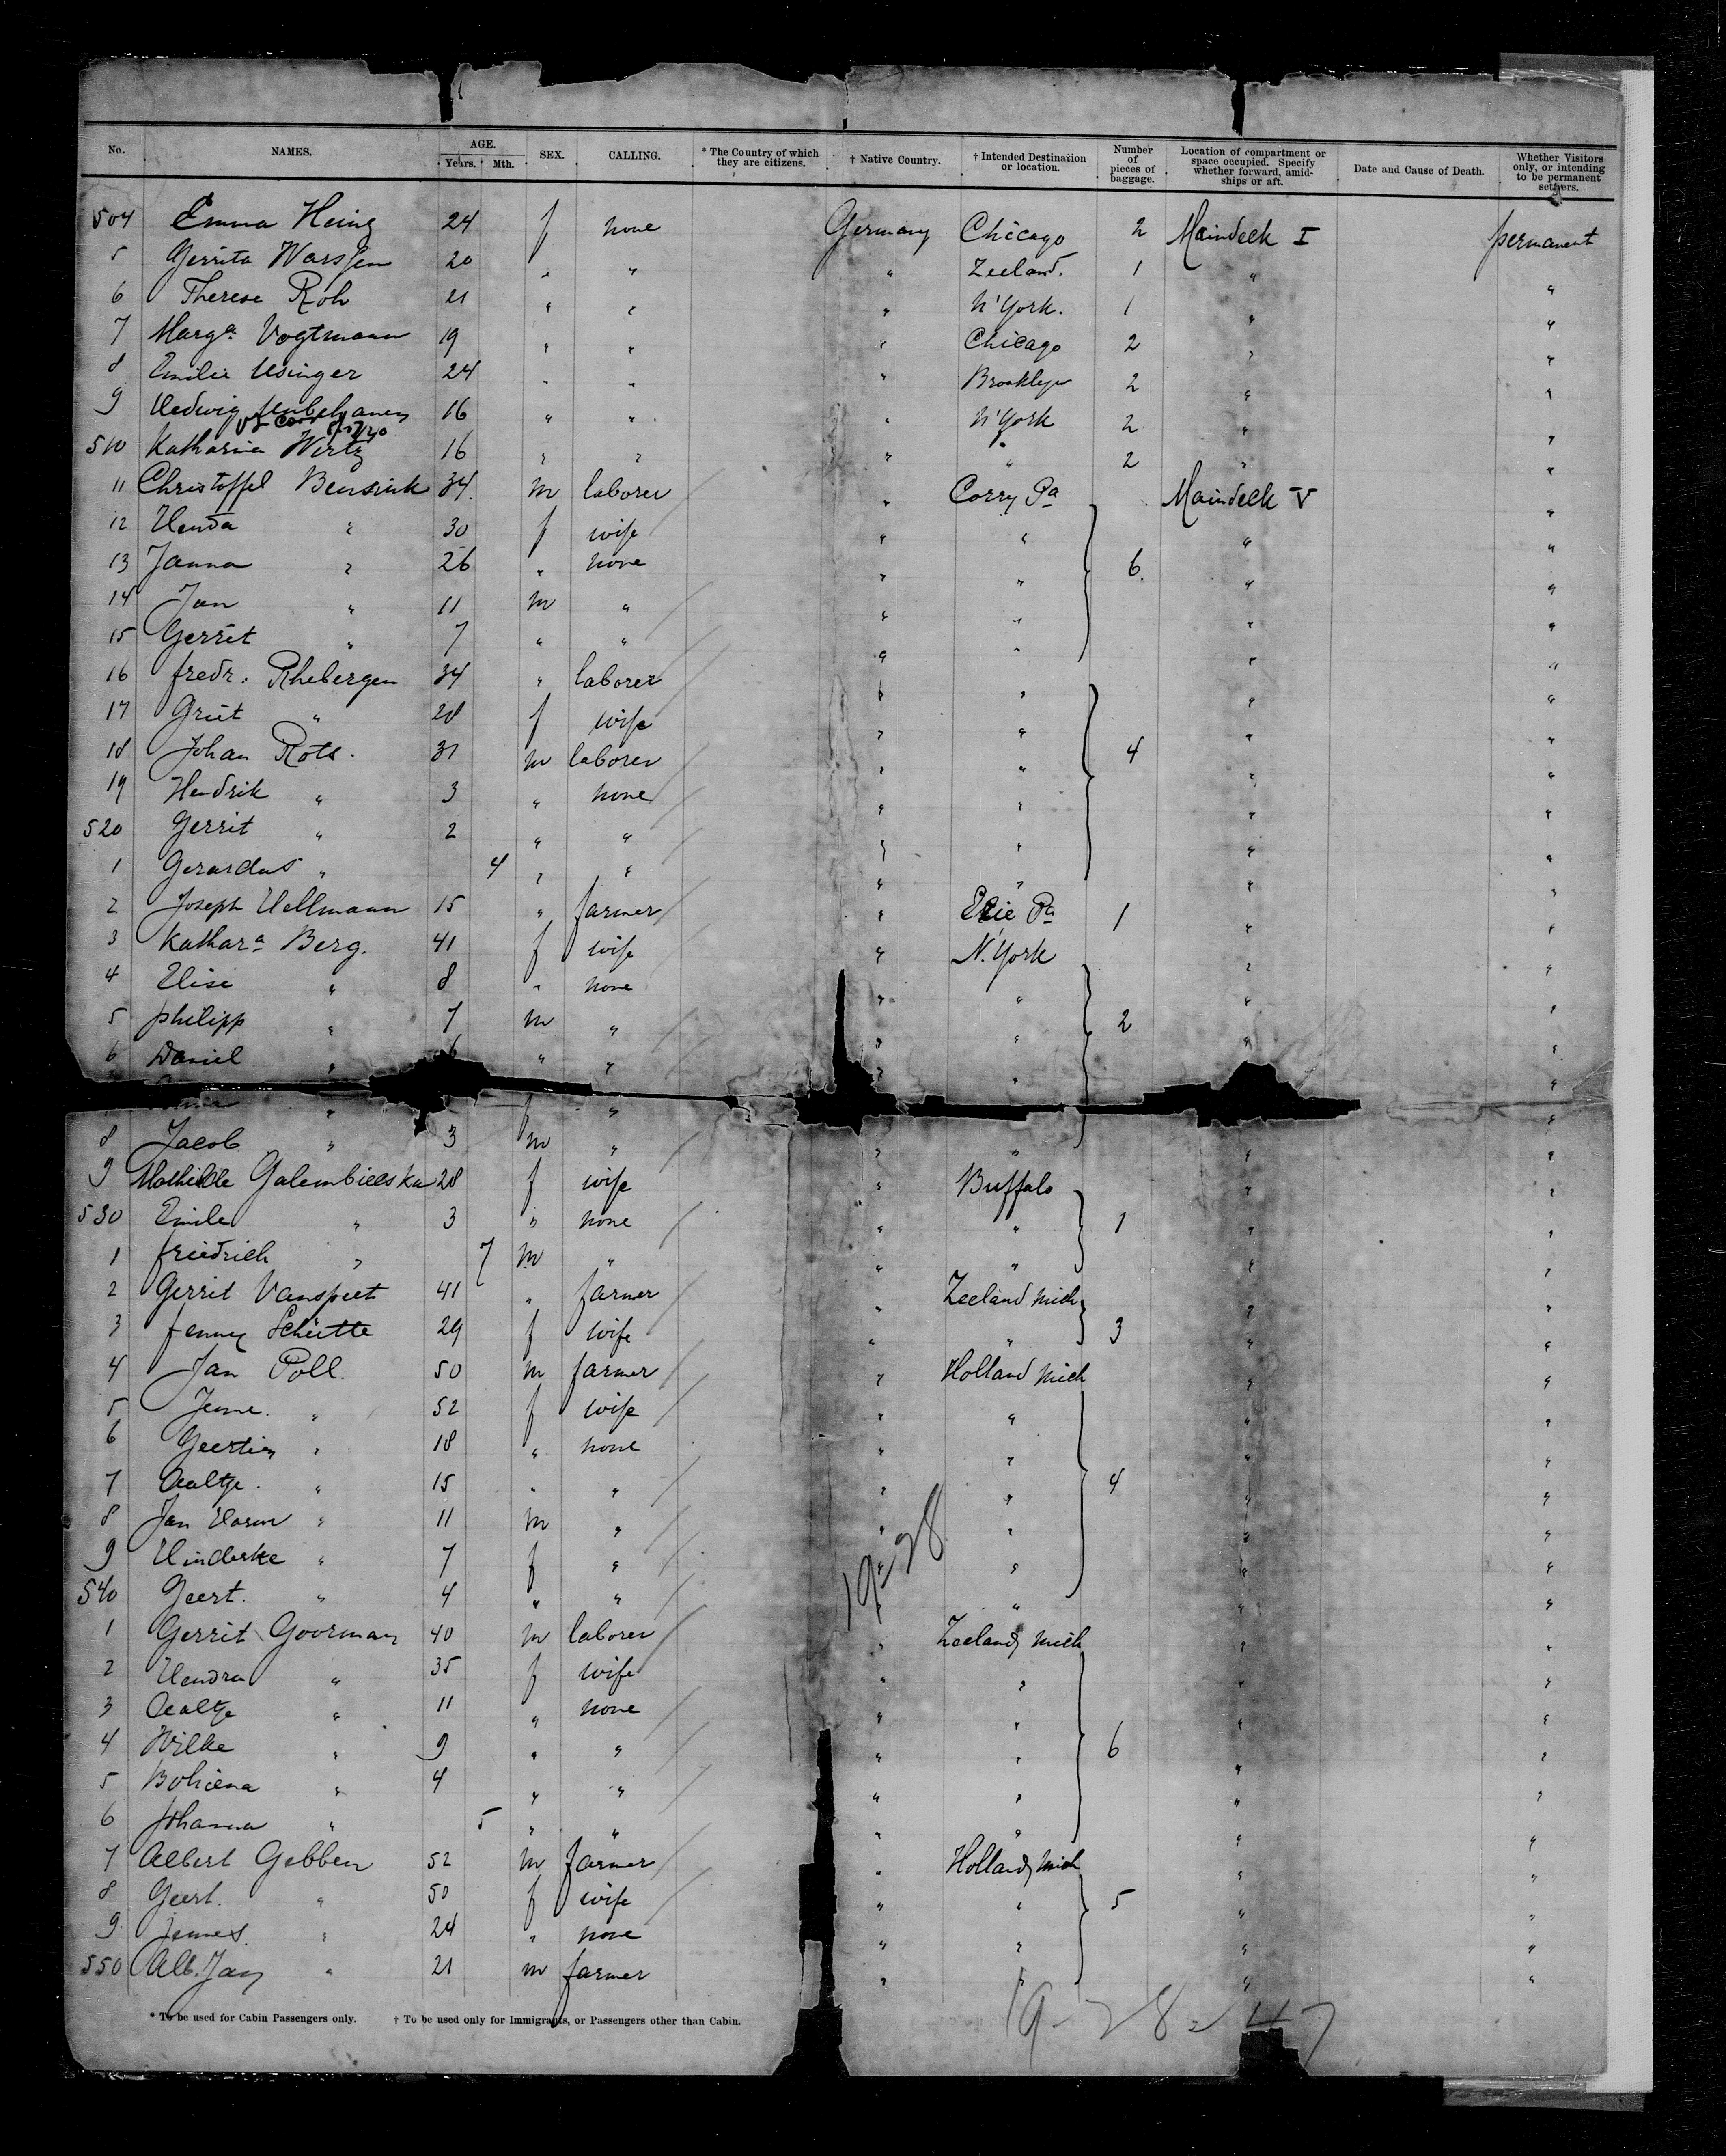 No. NAMES. AGE. Years. Mth. SEX. CALLING. * The Country of which they are citizens. † Native Country. † Intended Destination or location. Number of pieces of baggage. Location of compartment or space occupied. Specify whether forward, amidships or aft. Date and Cause of Death. Whether Visitors only, or intending to be permanent settlers.
504 Emma Heinz 24 f none Germany Chicago 2 Maindeck I permanent
5 Gerrita Warsfen 20 " " " Zeeland. 1 " "
6 Therese Roh 21 " " " N'York. 1 " "
7 Marga. Vogtmann 19 " " " Chicago 2 " "
8 Emilie Usinger 24 " " " Brooklyn 2 " "
9 Hedwig 16 " " " N'York 2 " "
510 Katharina Wirtz 16 " " " " 2 " "
11 Christoffel Bensink 34. m laborer " Corry Pa Maindeck V "
12 Henda " 30 f wife " " " "
13 Janna " 26 " none " " 6. " "
14 Jan " 11 m " " " " "
15 Gerrit " 7 " " " " " "
16 fredr. Rhebergen 34 " laborer " " " "
17 Griet " 28 f wife " " " "
18 Johan Rots. 31 m laborer " " 4 " "
19 Hendrik " 3 " none " " " "
520 Gerrit " 2 " " " " " "
1 Gerardus " 4 " " " " " "
2 Joseph Hellmann 15 " farmer " Erie Pa 1 " "
3 Kathara Berg. 41 f wife " N. York " "
4 Elise " 8 " none " " " "
5 philipp " 7 m " " " 2 " "
6 Daniel " 6 " " " " "
" f " "
8 Jacob " 3 m " " " " "
9 Mathilde Galembieska 28 f wife " Buffalo " "
530 Emile " 3 " none " " 1 " "
1 friedrich " 7 m " " " " "
2 Gerrit Vanspeet 41 " farmer " Zeeland Mich " "
3 fenny Schütte 29 f wife " " 3 " "
4 Jan Poll. 50 m farmer " Holland Mich " "
5 Jenne. " 52 f wife " " " "
6 Geertien " 18 " none " " " "
7 Aaltje. " 15 " " " " 4 " "
8 Jan Harm " 11 m " " " " "
9 Hinderke " 7 f " " " " "
540 Geert. " 4 " " " " " "
19-28
1 Gerrit Goorman 40 m laborer " Zeeland Mich " "
2 Hendra " 35 f wife " " " "
3 Aaltje " 11 " none " " " "
4 Wilke " 9 " " " " 6 " "
5 Bohiena " 4 " " " " " "
6 Johanna " 5 " " " " " "
7 Albert Gebben 52 m farmer " Holland Mich " "
8 Geert. " 50 f wife " " 5 " "
9 Jennes. " 24 " none " " " "
550 Alb. Jan " 21 m farmer " " " "
19-28=47
* To be used for Cabin Passengers only. † To be used only for Immigrants, or Passengers other than Cabin.